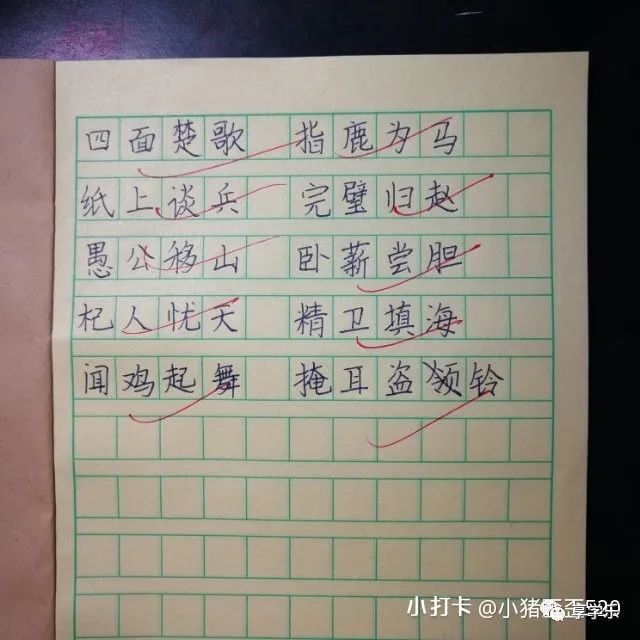 四面楚歌 指鹿为马
纸上谈兵 完璧归赵
愚公移山 卧薪尝胆
杞人忧天 精卫填海
闻鸡起舞 掩耳盗领铃
小打卡 @小猪歪歪520